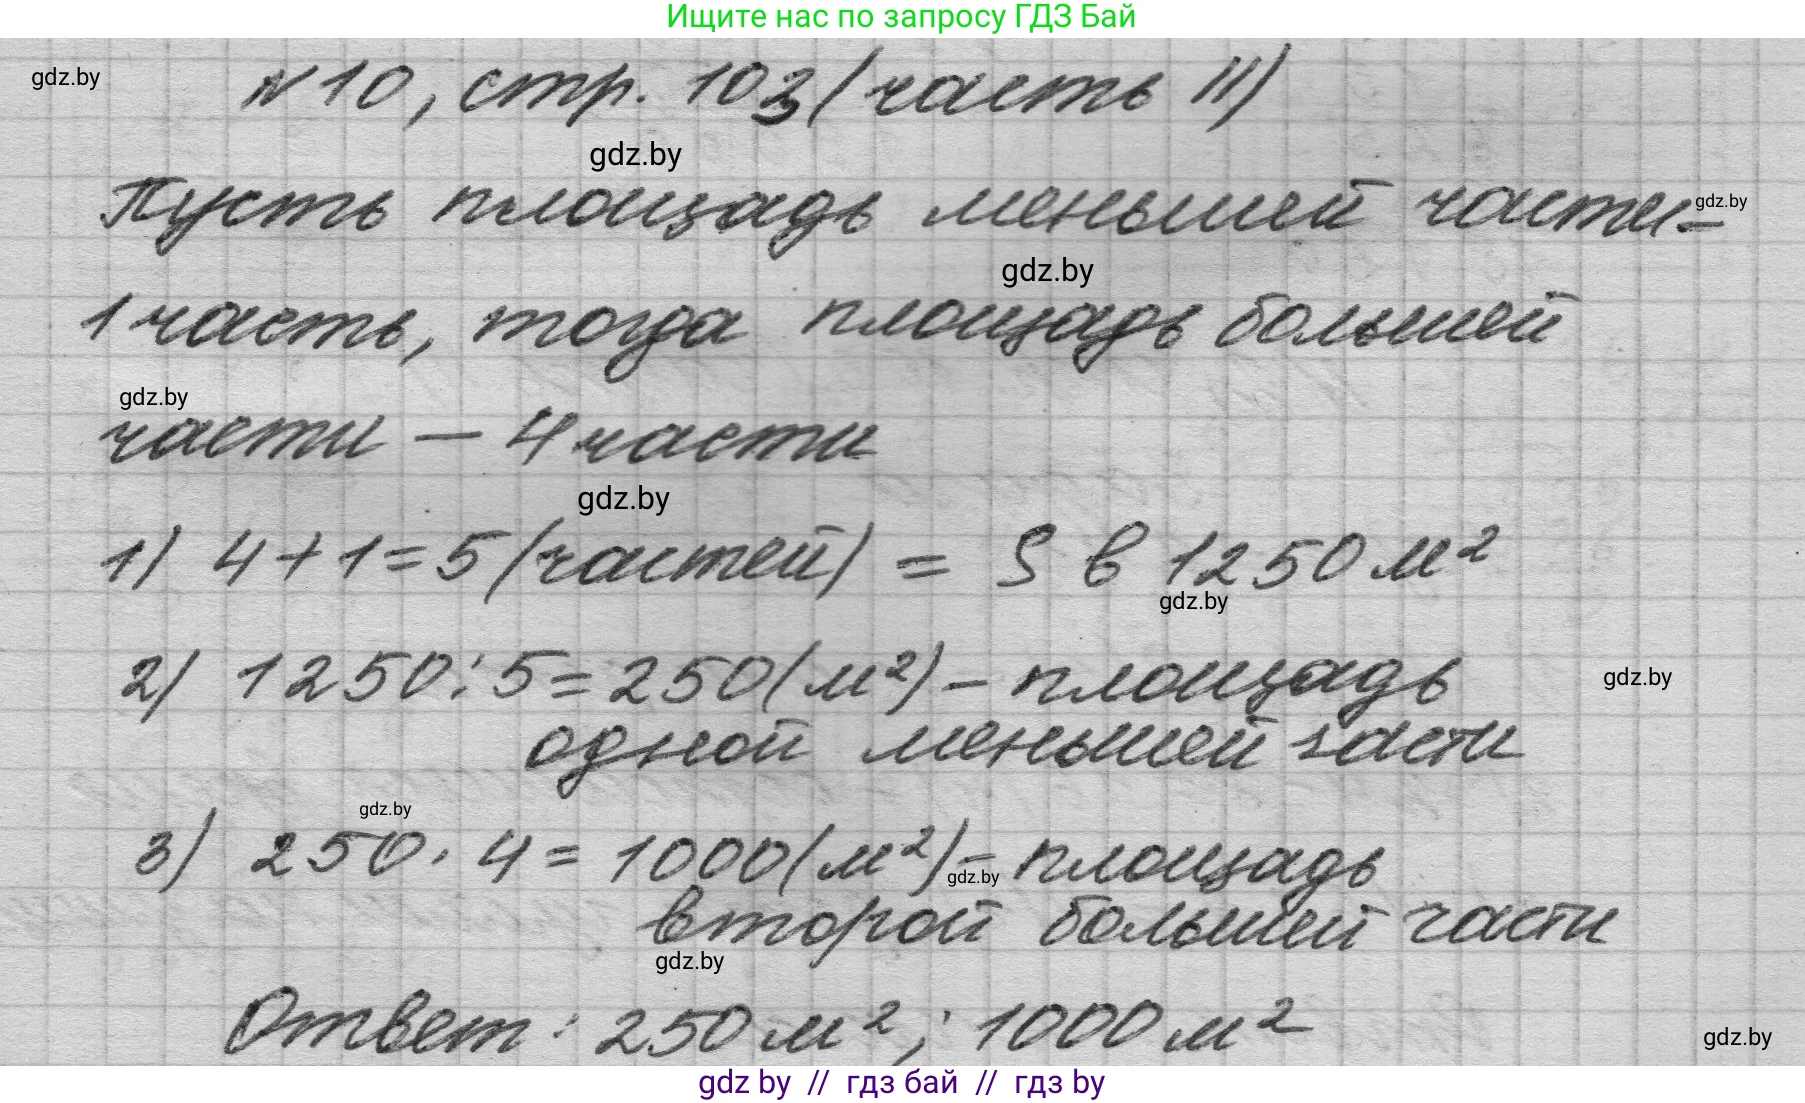 Ищите нас по запросу ГДЗ Бай
gdz.by
№10, стр. 103 (часть II)
gdz.by
Пусть площадь меньшей части-
gdz.by
gdz.by
1 часть, тогда площадь большей
gdz.by
части — 4 части
gdz.by
1) 4+1=5 (частей) = S в 1250 м²
gdz.by
2) 1250:5=250(м²) – площадь
gdz.by
одной меньшей части
gdz.by
3) 250·4=1000(м²)– площадь
gdz.by
второй большей части
gdz.by
Ответ: 250 м²; 1000 м²
gdz.by
gdz by // гдз бай // gdz by